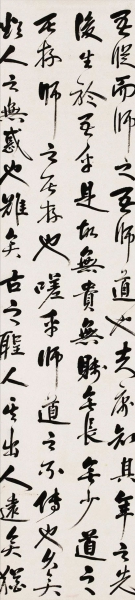 吾從而師之吾師道也夫庸知其年之先
後生於吾乎是故無貴無賤無長無少道之
所存師之所存也嗟乎師道之不傳也久矣
欲人之無惑也難矣古之聖人其出人遠矣猶